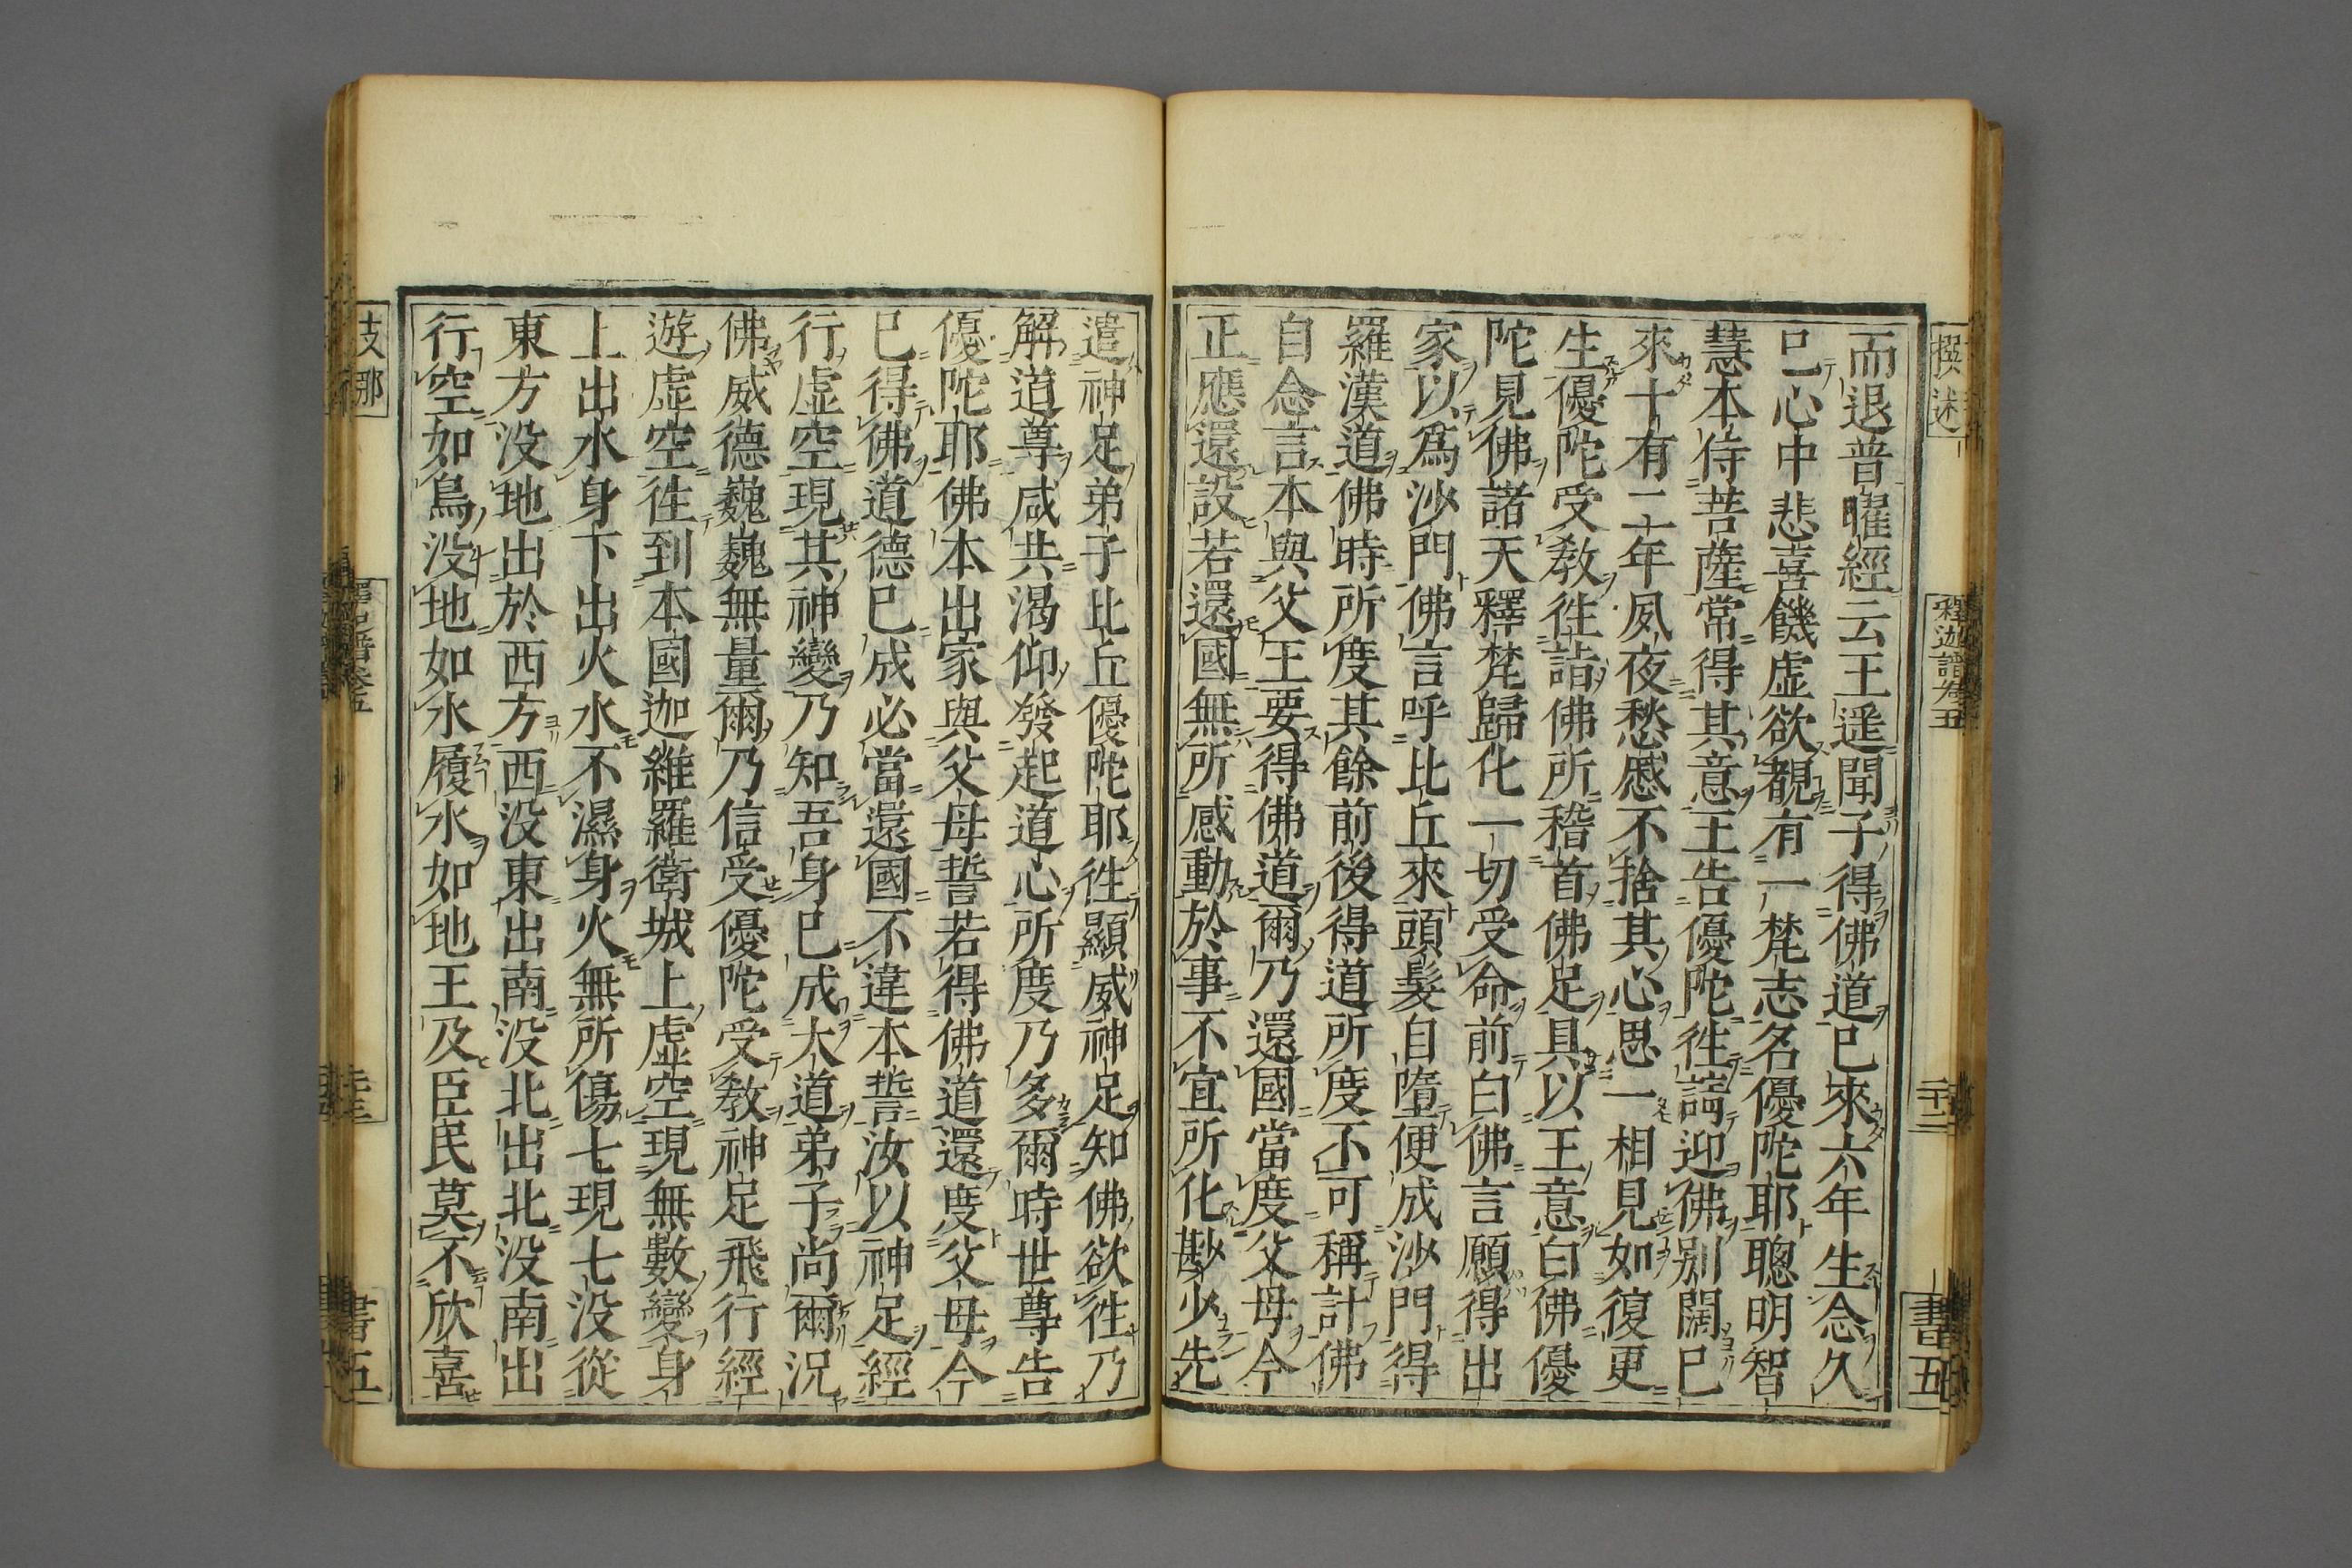 撰述
釋迦譜卷五
二十二
書五
而退普曜經云王遥聞子得佛道已來六年生念久
已心中悲喜饑虚欲覩有一梵志名優陀耶聰明智
慧本侍菩薩常得其意王告優陀徃請迎佛别闊已
來十有二年夙夜愁慼不捨其心思一相見如復更
生優陀受教徃詣佛所稽首佛足具以王意白佛優
陀見佛諸天釋梵歸化一切受命前白佛言願得出
家以爲沙門佛言呼比丘來頭髮自墮便成沙門得
羅漢道佛時所度其餘前後得道所度不可稱計佛
自念言本與父王要得佛道爾乃還國當度父母今
正應還設若還國無所感動於事不宜所化尠少先
遣神足弟子比丘優陀耶徃顯威神足知佛欲徃乃
解道尊咸共渴仰發起道心所度乃多爾時世尊告
優陀耶佛本出家與父母誓若得佛道還度父母今
已得佛道德已成必當還國不違本誓汝以神足經
行虚空現其神變乃知吾身已成大道弟子尚爾況
佛威德巍巍無量爾乃信受優陀受教神足飛行經
遊虚空徃到本國迦維羅衛城上虚空現無數變身
上出水身下出火水不濕身火無所傷七現七没從
東方没地出於西方西没東出南没北出北没南出
行空如鳥没地如水履水如地王及臣民莫不欣喜
支那
二十三
書五